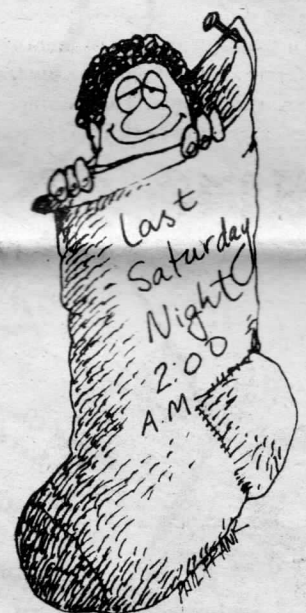 Last
Saturday
Night
2:00
A.M.
PHIL FRANK